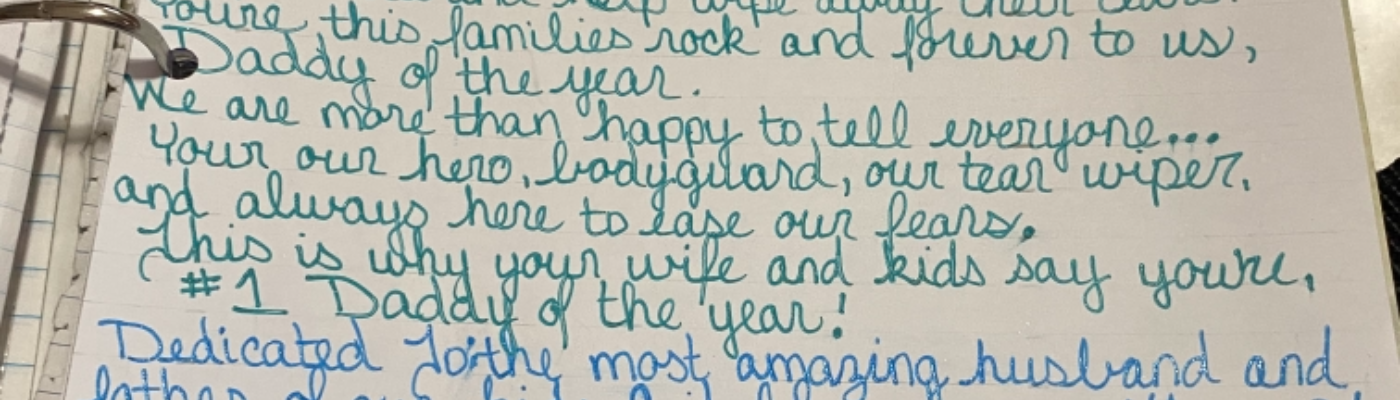 wipe away their
You're this families rock and forever to us,
Daddy of the year.
We are more than happy to tell everyone...
Your our hero, bodyguard, our tear wiper,
and always here to ease our fears.
This is why your wife and kids say you're,
#1 Daddy of the year!
Dedicated To the most amazing husband and
father of